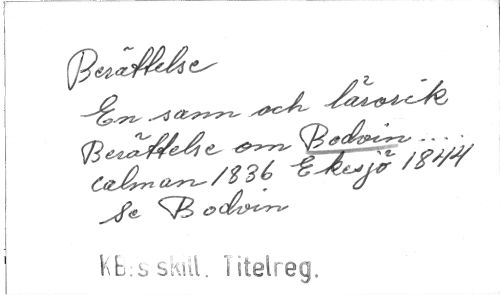 Berättelse
En sann och lärorik
Berättelse om Bodvin ....
calman 1836 Eksjö 1844
Se Bodvin
KB:s skill. Titelreg.